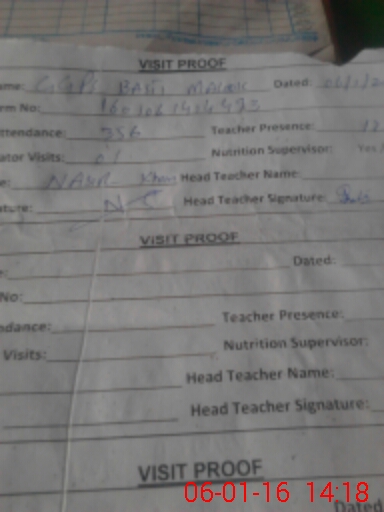 VISIT PROOF
ame: GGPS BASTI MALOOK Dated: 06/1/2
rm No:
ttendance: 356 Teacher Presence: 12
ator Visits: 01 Nutrition Supervisor: Yes/
e: NASR Khan Head Teacher Name:
ature: Head Teacher Signature:
VISIT PROOF
e: Dated:
No:
ndance: Teacher Presence:
Visits: Nutrition Supervisor:
Head Teacher Name:
Head Teacher Signature:
VISIT PROOF
06-01-16 14:18
Dated